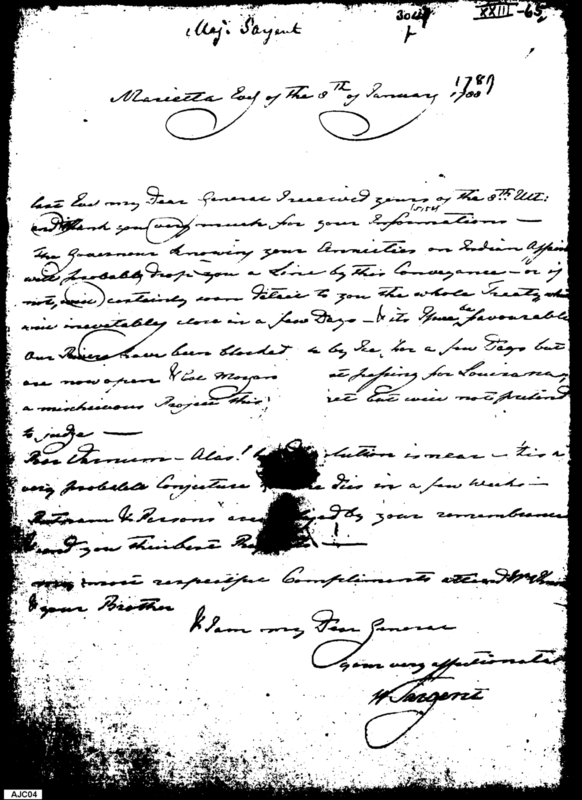 Maj. Sargent
XXIII-65
Marietta Eve of the 8th of January 1789
last Eve my Dear General I received yours of the 8th Ult:
and thank you very much for your Informations —
The Governour knowing your Anxieties on Indian Affairs
will probably drop you a Line by this Conveyance — or if
not, will certainly soon detail to you the whole Treaty which
will inevitably close in a few Days — & its Issue be favourable
Our Rivers have been blocked by Ice, for a few Days but
are now open & Col Morgan passing for Louisiana,
a mischievous Project this but will not pretend
to judge —
Poor Varnum — Alas! his Dissolution is near — tis a
very probable Conjecture he dies in a few weeks —
Putnam & Parsons are by your remembrance
& send you their best
my most respectful Compliments attend Mrs
& your Brother
& I am my Dear General
your very affectionate
W Sargent
AJC04